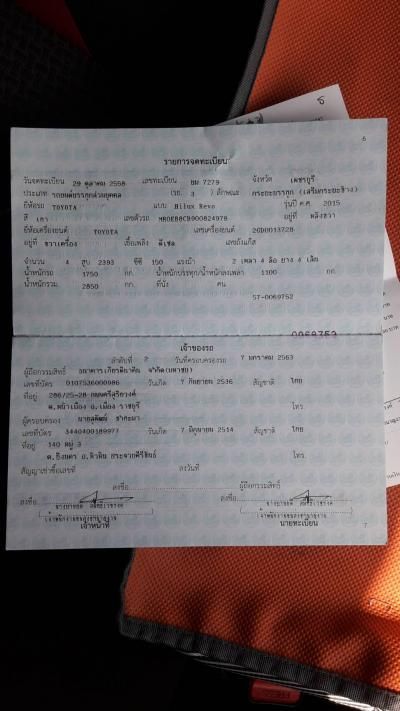 6
รายการจดทะเบียน
วันจดทะเบียน 29 ตุลาคม 2558 เลขทะเบียน ผม 7279 จังหวัด เพชรบุรี
ประเภท รถยนต์บรรทุกส่วนบุคคล (รย. 3 ) ลักษณะ กระบะบรรทุก (เสริมกระบะข้าง)
ยี่ห้อรถ TOYOTA แบบ Hilux Revo รุ่นปี ค.ศ. 2015
สี เทา เลขตัวรถ MR0EB8CB900824978 อยู่ที่ หลังขวา
ยี่ห้อเครื่องยนต์ TOYOTA เลขเครื่องยนต์ 2GD0013728
อยู่ที่ ขวาเครื่อง เชื้อเพลิง ดีเซล เลขถังแก๊ส
จำนวน 4 สูบ 2393 ซีซี 150 แรงม้า 2 เพลา 4 ล้อ ยาง 4 เส้น
น้ำหนักรถ 1750 กก. น้ำหนักบรรทุก/น้ำหนักลงเพลา 1100 กก.
น้ำหนักรวม 2850 กก. ที่นั่ง คน
57-0069752
เจ้าของรถ
ลำดับที่ วันที่ครอบครองรถ 7 มกราคม 2563
ผู้ถือกรรมสิทธิ์ ธนาคารเกียรตินาคิน จำกัด(มหาชน)
เลขที่บัตร 0107536000986 วันเกิด 7 กันยายน 2536 สัญชาติ ไทย
ที่อยู่ 286/25-28 ถนนศรีสุริยวงศ์
ต.หน้าเมือง อ.เมือง ราชบุรี โทร.
ผู้ครอบครอง
เลขที่บัตร 3440400189977 วันเกิด 7 มิถุนายน 2514 สัญชาติ ไทย
ที่อยู่ 140 หมู่ 3
โทร.
สัญญาเช่าซื้อเลขที่ ลงวันที่
ลงชื่อ ผู้ถือกรรมสิทธิ์
ลงชื่อ ลงชื่อ
เจ้าหน้าที่ นายทะเบียน
7